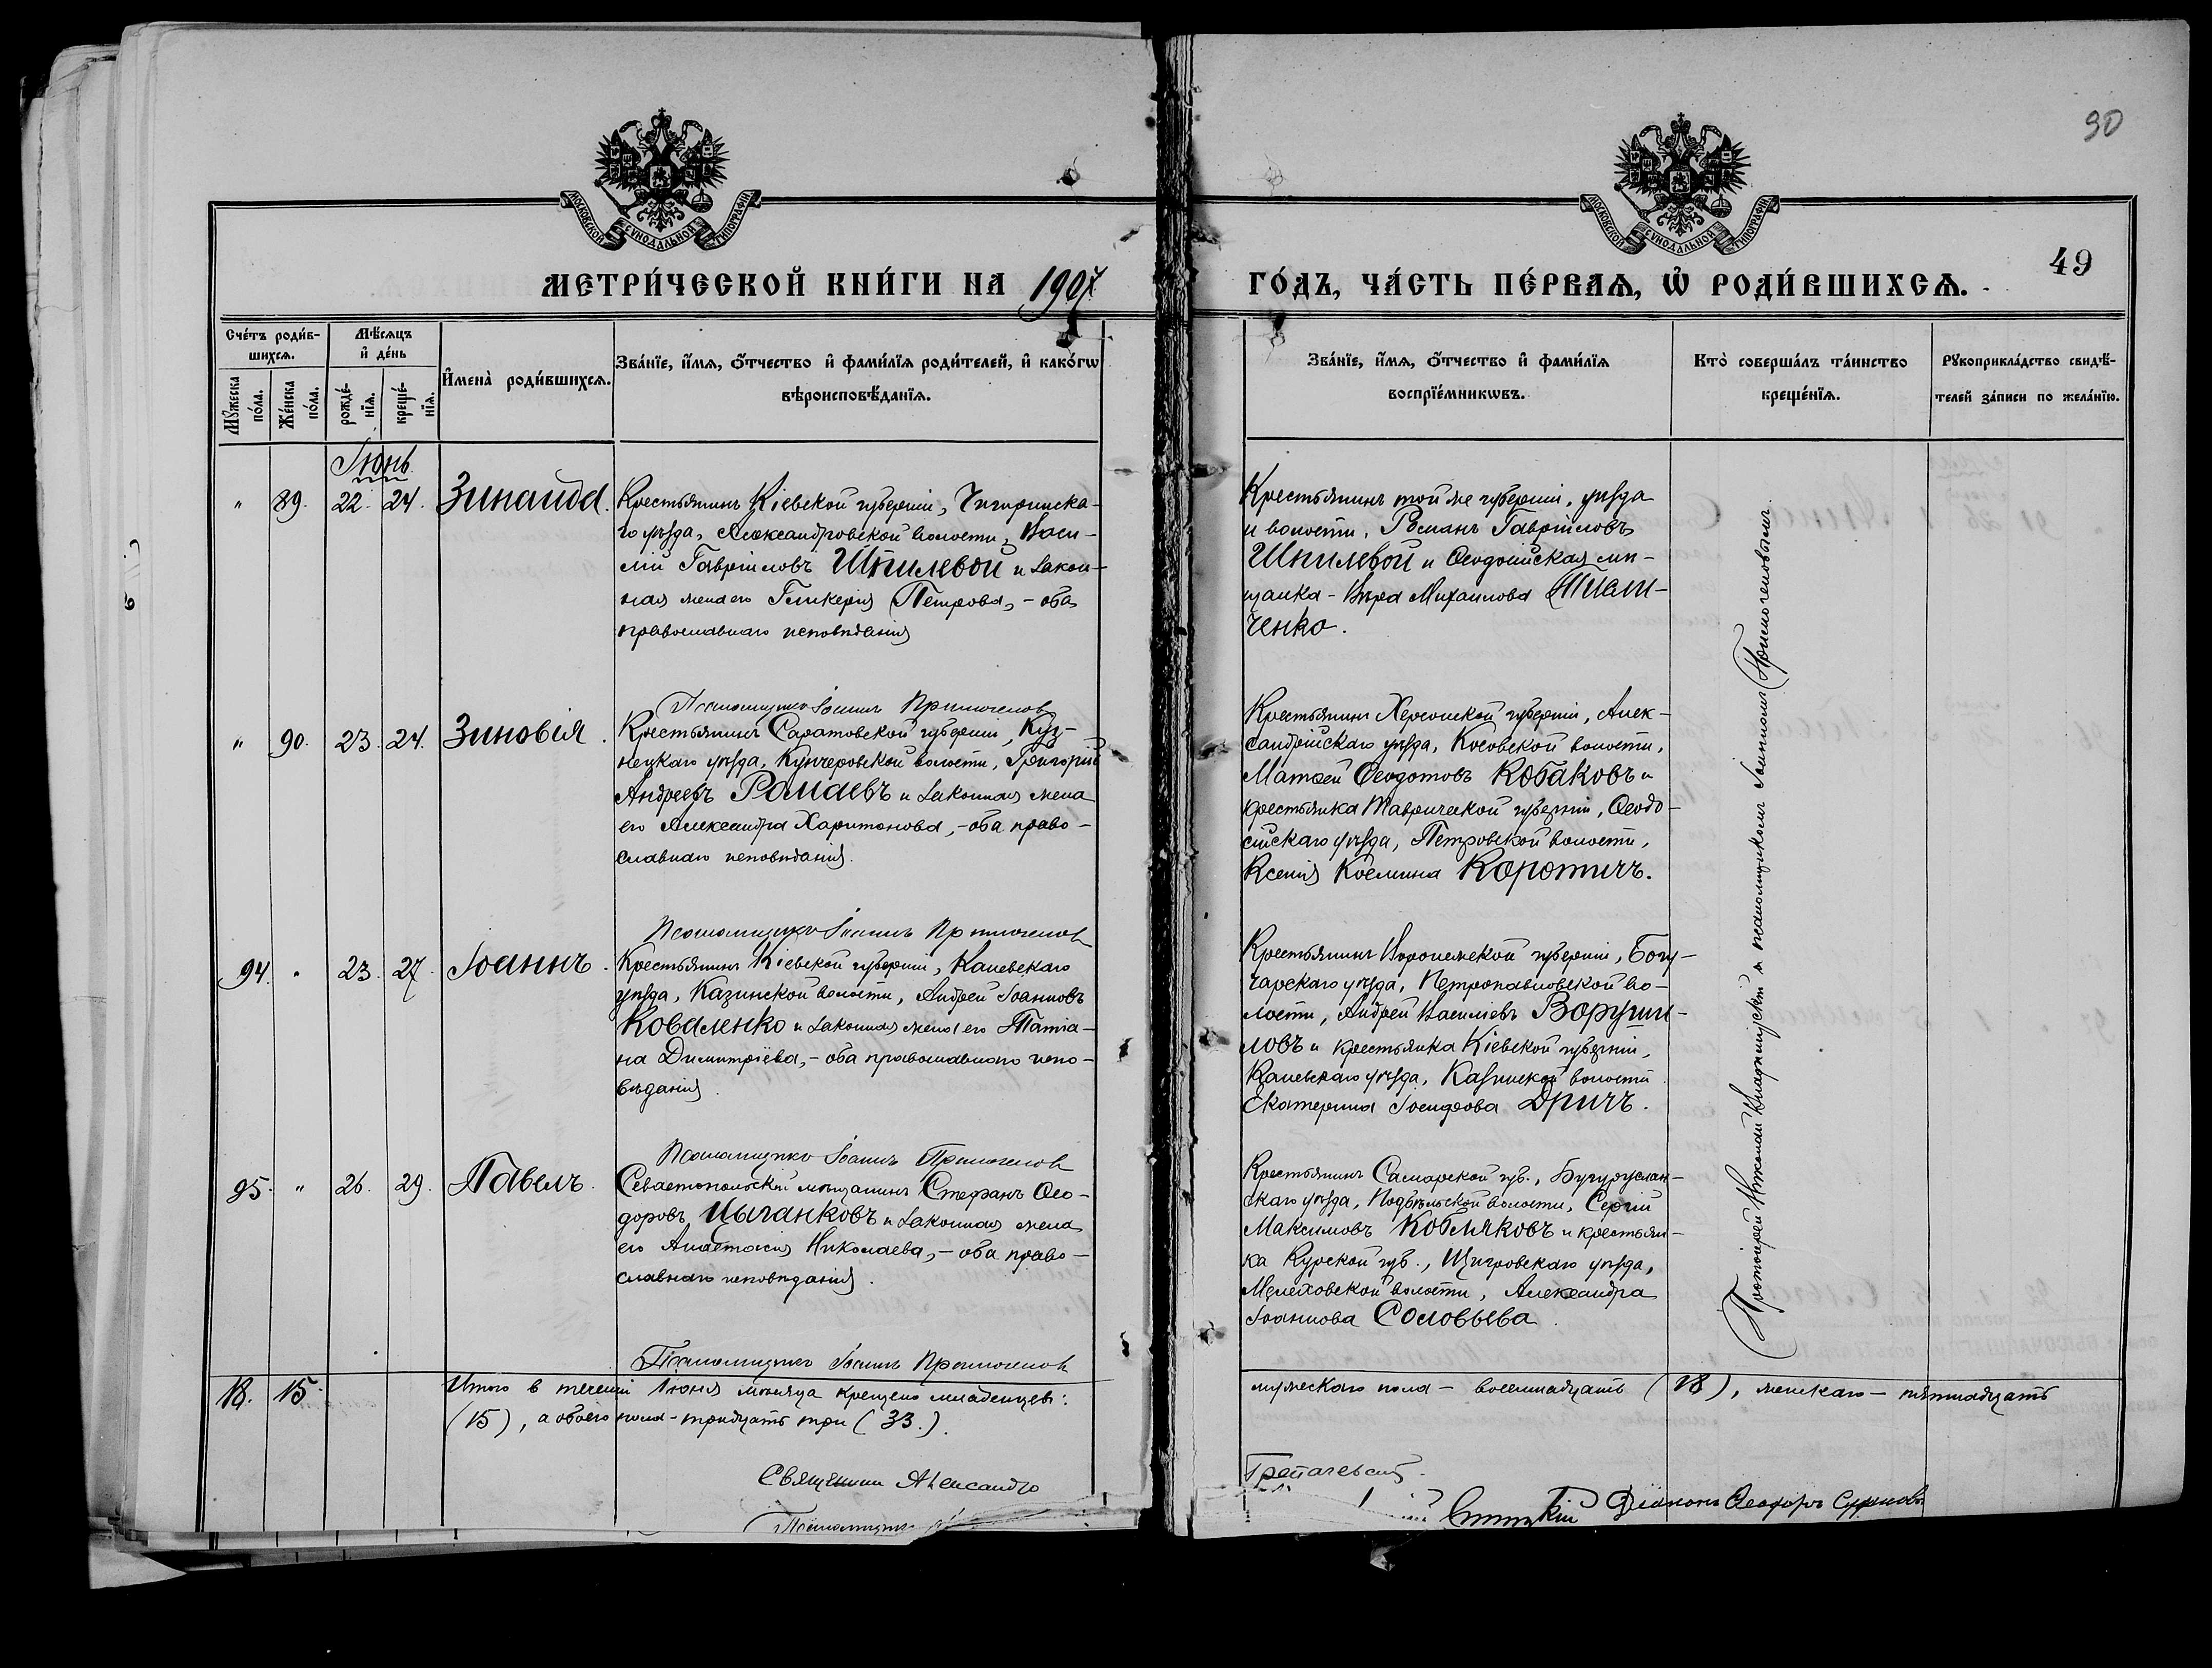 30
МОСКОВСКОЙ СѴНОДАЛЬНОЙ ТИПОГРАФІИ.
МОСКОВСКОЙ СѴНОДАЛЬНОЙ ТИПОГРАФІИ.
МЕТРИ́ЧЕСКОЙ КНИ́ГИ НА 1907
ГО́ДЪ, ЧА́СТЬ ПЕ́РВАѦ, Ѽ РОДИ́ВШИХСѦ.
49
Сче́тъ роди́в-
шихсѧ.
Мꙋ́жеска
по́ла.
Же́нска
по́ла.
Мѣ́сѧцъ
и҆ де́нь
рожде́-
нїѧ.
креще́-
нїѧ.
И҆мена̀ роди́вшихсѧ.
Зва́нїе, и҆́мѧ, ѻ҆́тчество и҆ фами́лїѧ роди́телей, и҆ како́гѡ
вѣроисповѣ́данїѧ.
Зва́нїе, и҆́мѧ, ѻ҆́тчество и҆ фами́лїѧ
воспрїе́мникѡвъ.
Кто̀ соверша́лъ та́инство
креще́нїѧ.
Рꙋкоприкла́дство свидѣ́-
телей за́писи по жела́нїю.
Іюнь
" 89. 22. 24. Зинаида.
Крестьянинъ Кіевской губерніи, Чигиринска-
го уѣзда, Александровской волости, Васи-
лій Гавріиловъ Шпилевой и закон-
ная жена его Гликерія Петрова, - оба
православнаго исповѣданія
Крестьянинъ той же губерніи, уѣзда
и волости, Романъ Гавріиловъ
Шпилевой и Ѳеодосійская мѣ-
щанка - Вѣра Михаилова
ченко.
Псаломщикъ Іоаннъ Приложеновъ
" 90. 23. 24. Зиновія.
Крестьянинъ Саратовской губерніи, Куз-
нецкаго уѣзда, Кунчеровской волости, Григорій
Андреевъ Ромаевъ и законная жена
его Александра Харитонова, - оба право-
славнаго исповѣданія.
Крестьянинъ Херсонской губерніи, Алек-
сандрійскаго уѣзда, Косовской волости,
Матѳей Ѳеодотовъ Кобаковъ и
крестьянка Таврической губерніи, Ѳеодо-
сійскаго уѣзда, Петровской волости,
Ксенія Косьмина Коротичъ.
Псаломщикъ Іоаннъ Приложеновъ
94. " 23. 27. Іоаннъ.
Крестьянинъ Кіевской губерніи, Каневскаго
уѣзда, Казинской волости, Андрей Іоанновъ
Коваленко и законная жена его Татіа-
на Димитріева, - оба православнаго испо-
вѣданія.
Крестьянинъ Воронежской губерніи, Богу-
чарскаго уѣзда, Петропавловской во-
лости, Андрей Василіевъ Воруши-
ловъ и крестьянка Кіевской губерніи,
Каневскаго уѣзда, Казинской волости
Екатерина Іосифова Дричъ.
Псаломщикъ Іоаннъ Приложеновъ
95. " 26. 29. Павелъ.
Севастопольскій мѣщанинъ Стефанъ Ѳео-
доровъ Цыганковъ и законная жена
его Анастасія Николаева, - оба право-
славнаго исповѣданія.
Крестьянинъ Самарской губ., Бугуруслан-
скаго уѣзда, Подбѣльской волости, Сергій
Максимовъ Кобляковъ и крестьян-
ка Курской губ., Щигровскаго уѣзда,
Мелеховской волости, Александра
Іоаннова Соловьева.
Псаломщикъ Іоаннъ Приложеновъ
Протоіерей Николай и псаломщикомъ Іоанномъ Приложеновымъ.
18. 15.
Итого в теченіи Іюня мѣсяца крещено младенцевъ:
мужескаго пола - восемнадцать (18), женскаго - пятнадцать
(15), а обоего пола - тридцать три (33.).
Священникъ Александръ
Псаломщикъ
Діаконъ Ѳеодоръ